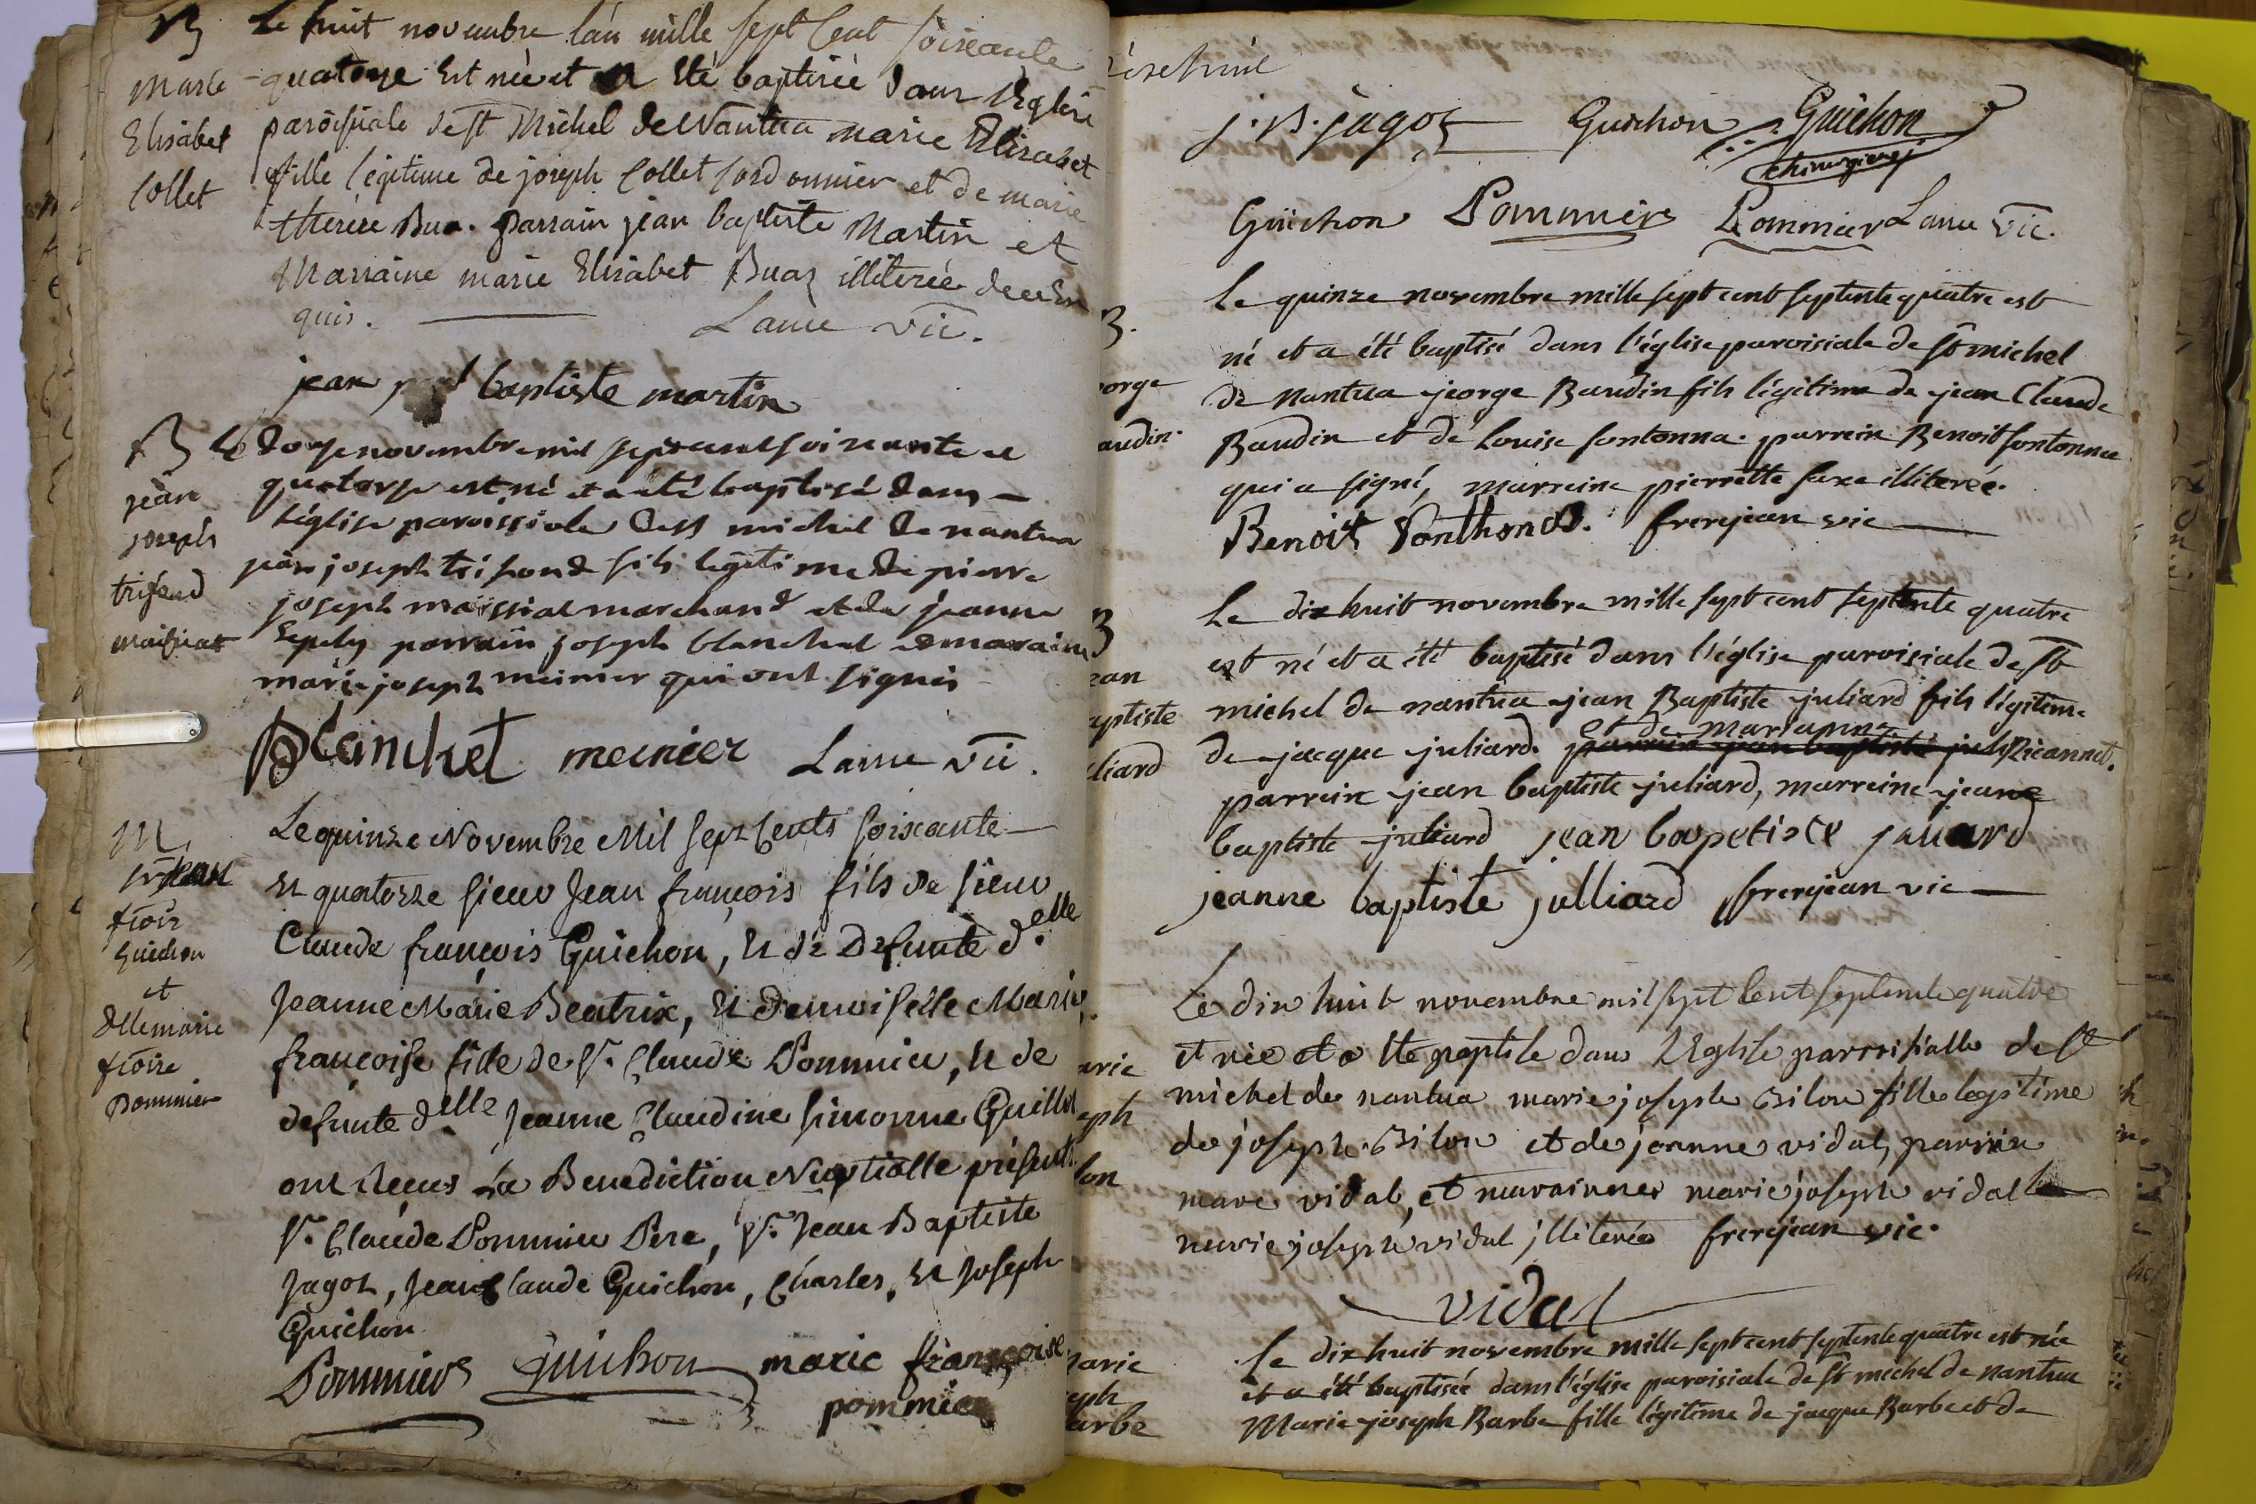 B
Marie
Elisabet
Collet
Le huit novembre l'an mille sept cent soixante
quatorze Est née et a Eté baptisée dans l'Eglise
paroissiale de st Michel de Nantua marie Elisabet
fille légitime de joseph Collet cordonnier et de marie
therese Buaz. parrain jean baptiste Martin et
Marraine marie Elisabet Buaz illiterée de ce En
quis. Lanne vic.
jean baptiste martin
B
jean
joseph
trifond
maissiat
Le doze novembre mil sept cent soixante et
quatorze est né et a été baptisé dans
l'églisse paroissiale de st michel de nantua
jean joseph trifond fils legitime de pierre
joseph maissiat marchand et de jeanne
parrain joseph blanchet et maraine
marie joseph meinier qui ont signés
Blanchet meinier Lanne vic.
M
sr jean
frois
Guichon
et
Dlle marie
froise
Pommier
Le quinze Novembre Mil sept Cents soixante
Et quatorze sieur Jean françois fils de sieur
Claude françois Guichon, Et de Defunte d.elle
Jeanne Marie Beatrix, Et Demoiselle Marie
françoise fille de Sr. Claude Pommier, Et de
defunte d.elle Jeanne Claudine Simonne Guillot
ont Reçus La Benediction Nuptialle présents
Sr. Claude Pommier Pere, Sr. Jean Baptiste
Jagot, Jean Claude Guichon, Charles, Et Joseph
Guichon
Pommier Guichon marie françoise
pommier
j. B. jagot Guichon Guichon
chirurgien
Guichon Pommier Pommier Lanne vic.
B.
orge
audin.
Le quinze novembre mille sept cent septente quatre est
né et a été baptisé dans l'église paroisiale de st michel
de nantua george Baudin fils légitime de jean Claude
Baudin et de Louise fontonna. parrein Benoit fontonna
qui a signé, marreine pierrette faxe illiterée.
Benoit Fonthonas. frerejean vic
B
ean
aptiste
liard
Le dix huit novembre mille sept cent septente quatre
est né et a été baptisé dans l'église paroisiale de st
michel de nantua jean Baptiste juliard fils légitime
et de marianne
de jacque juliard. parrein jean baptiste juli Ricannet.
parrein jean baptiste juliard, marreine jeane
baptiste juliard jean bapetiste juliard
jeanne baptiste julliard frerejean vic
arie
eph
lon
Le dix huit novembre mil sept Cent septente quatre
et née et a Ete paptise dans l'Eglise parroisialle de st
michel de nantua marie joseph Bilon fille legitime
de joseph Bilon et de jeanne vidal, parrein
marc vidal, et marainne marie joseph vidal
marie joseph vidal illiterée frerejean vic.
vidal
arie
eph
arbe
Le dix huit novembre mille sept cent septente quatre est née
et a été baptisée dans l'église paroisiale de st michel de nantua
Marie joseph Barbe fille légitime de jacque Barbe et de